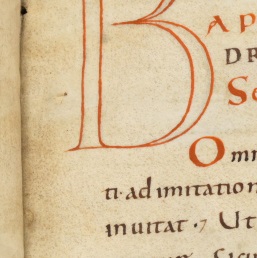 BAP
DR
S
Omn
ti· ad imitation
inuitat ·7 Ut